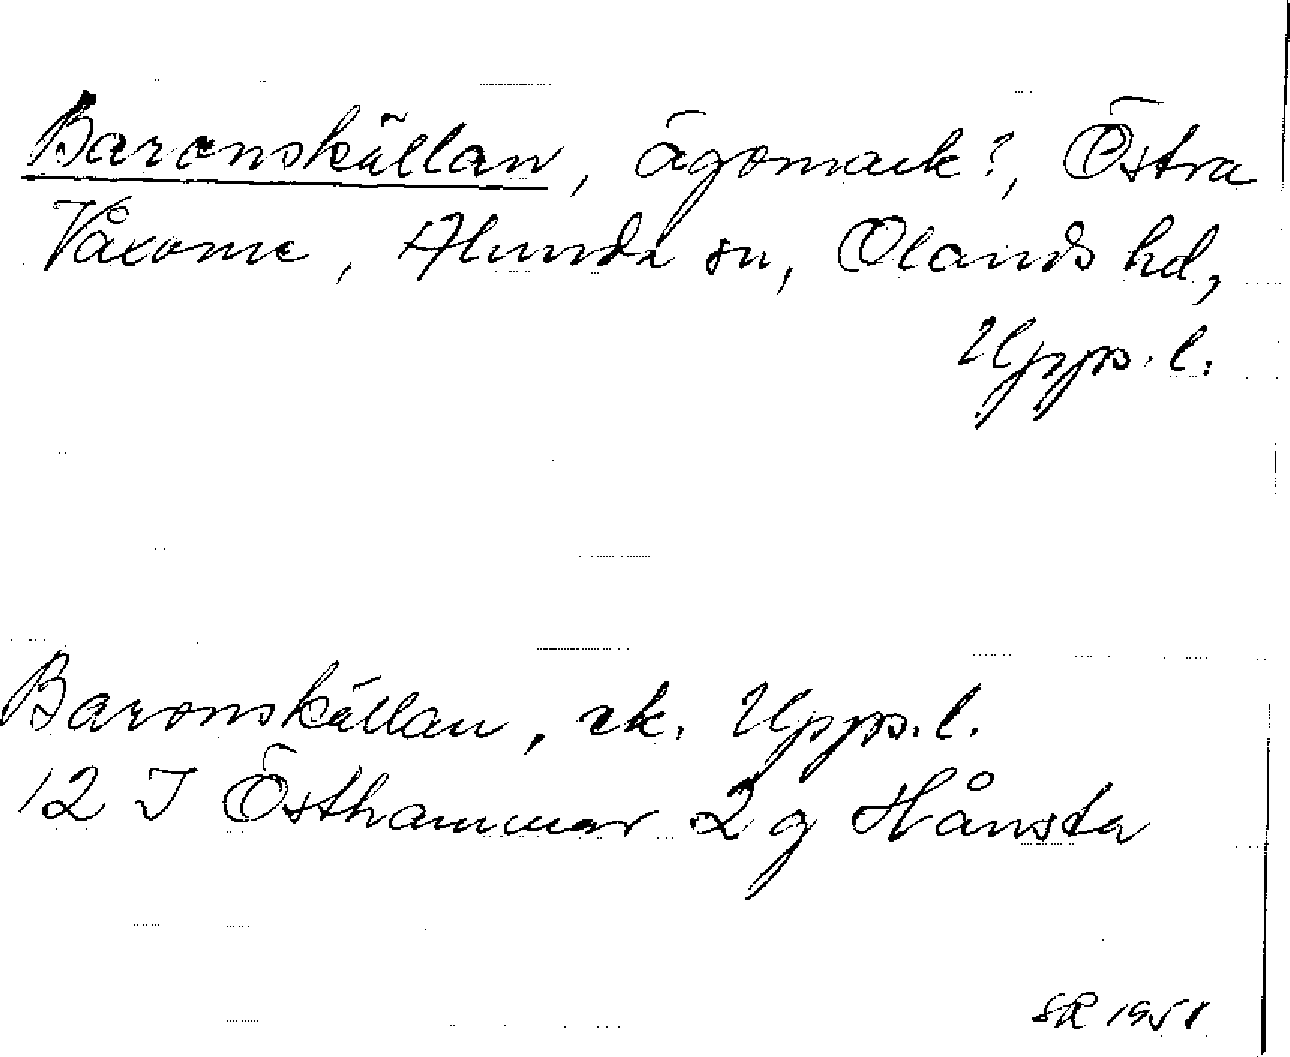 Baronskällan, ägomark?, Östra
Våxome, Alunda sn, Olands hd,
Upps. l.
Baronskällan, ek. Upps. l.
12 I Östhammar 2 g Hånsta
SR 1951